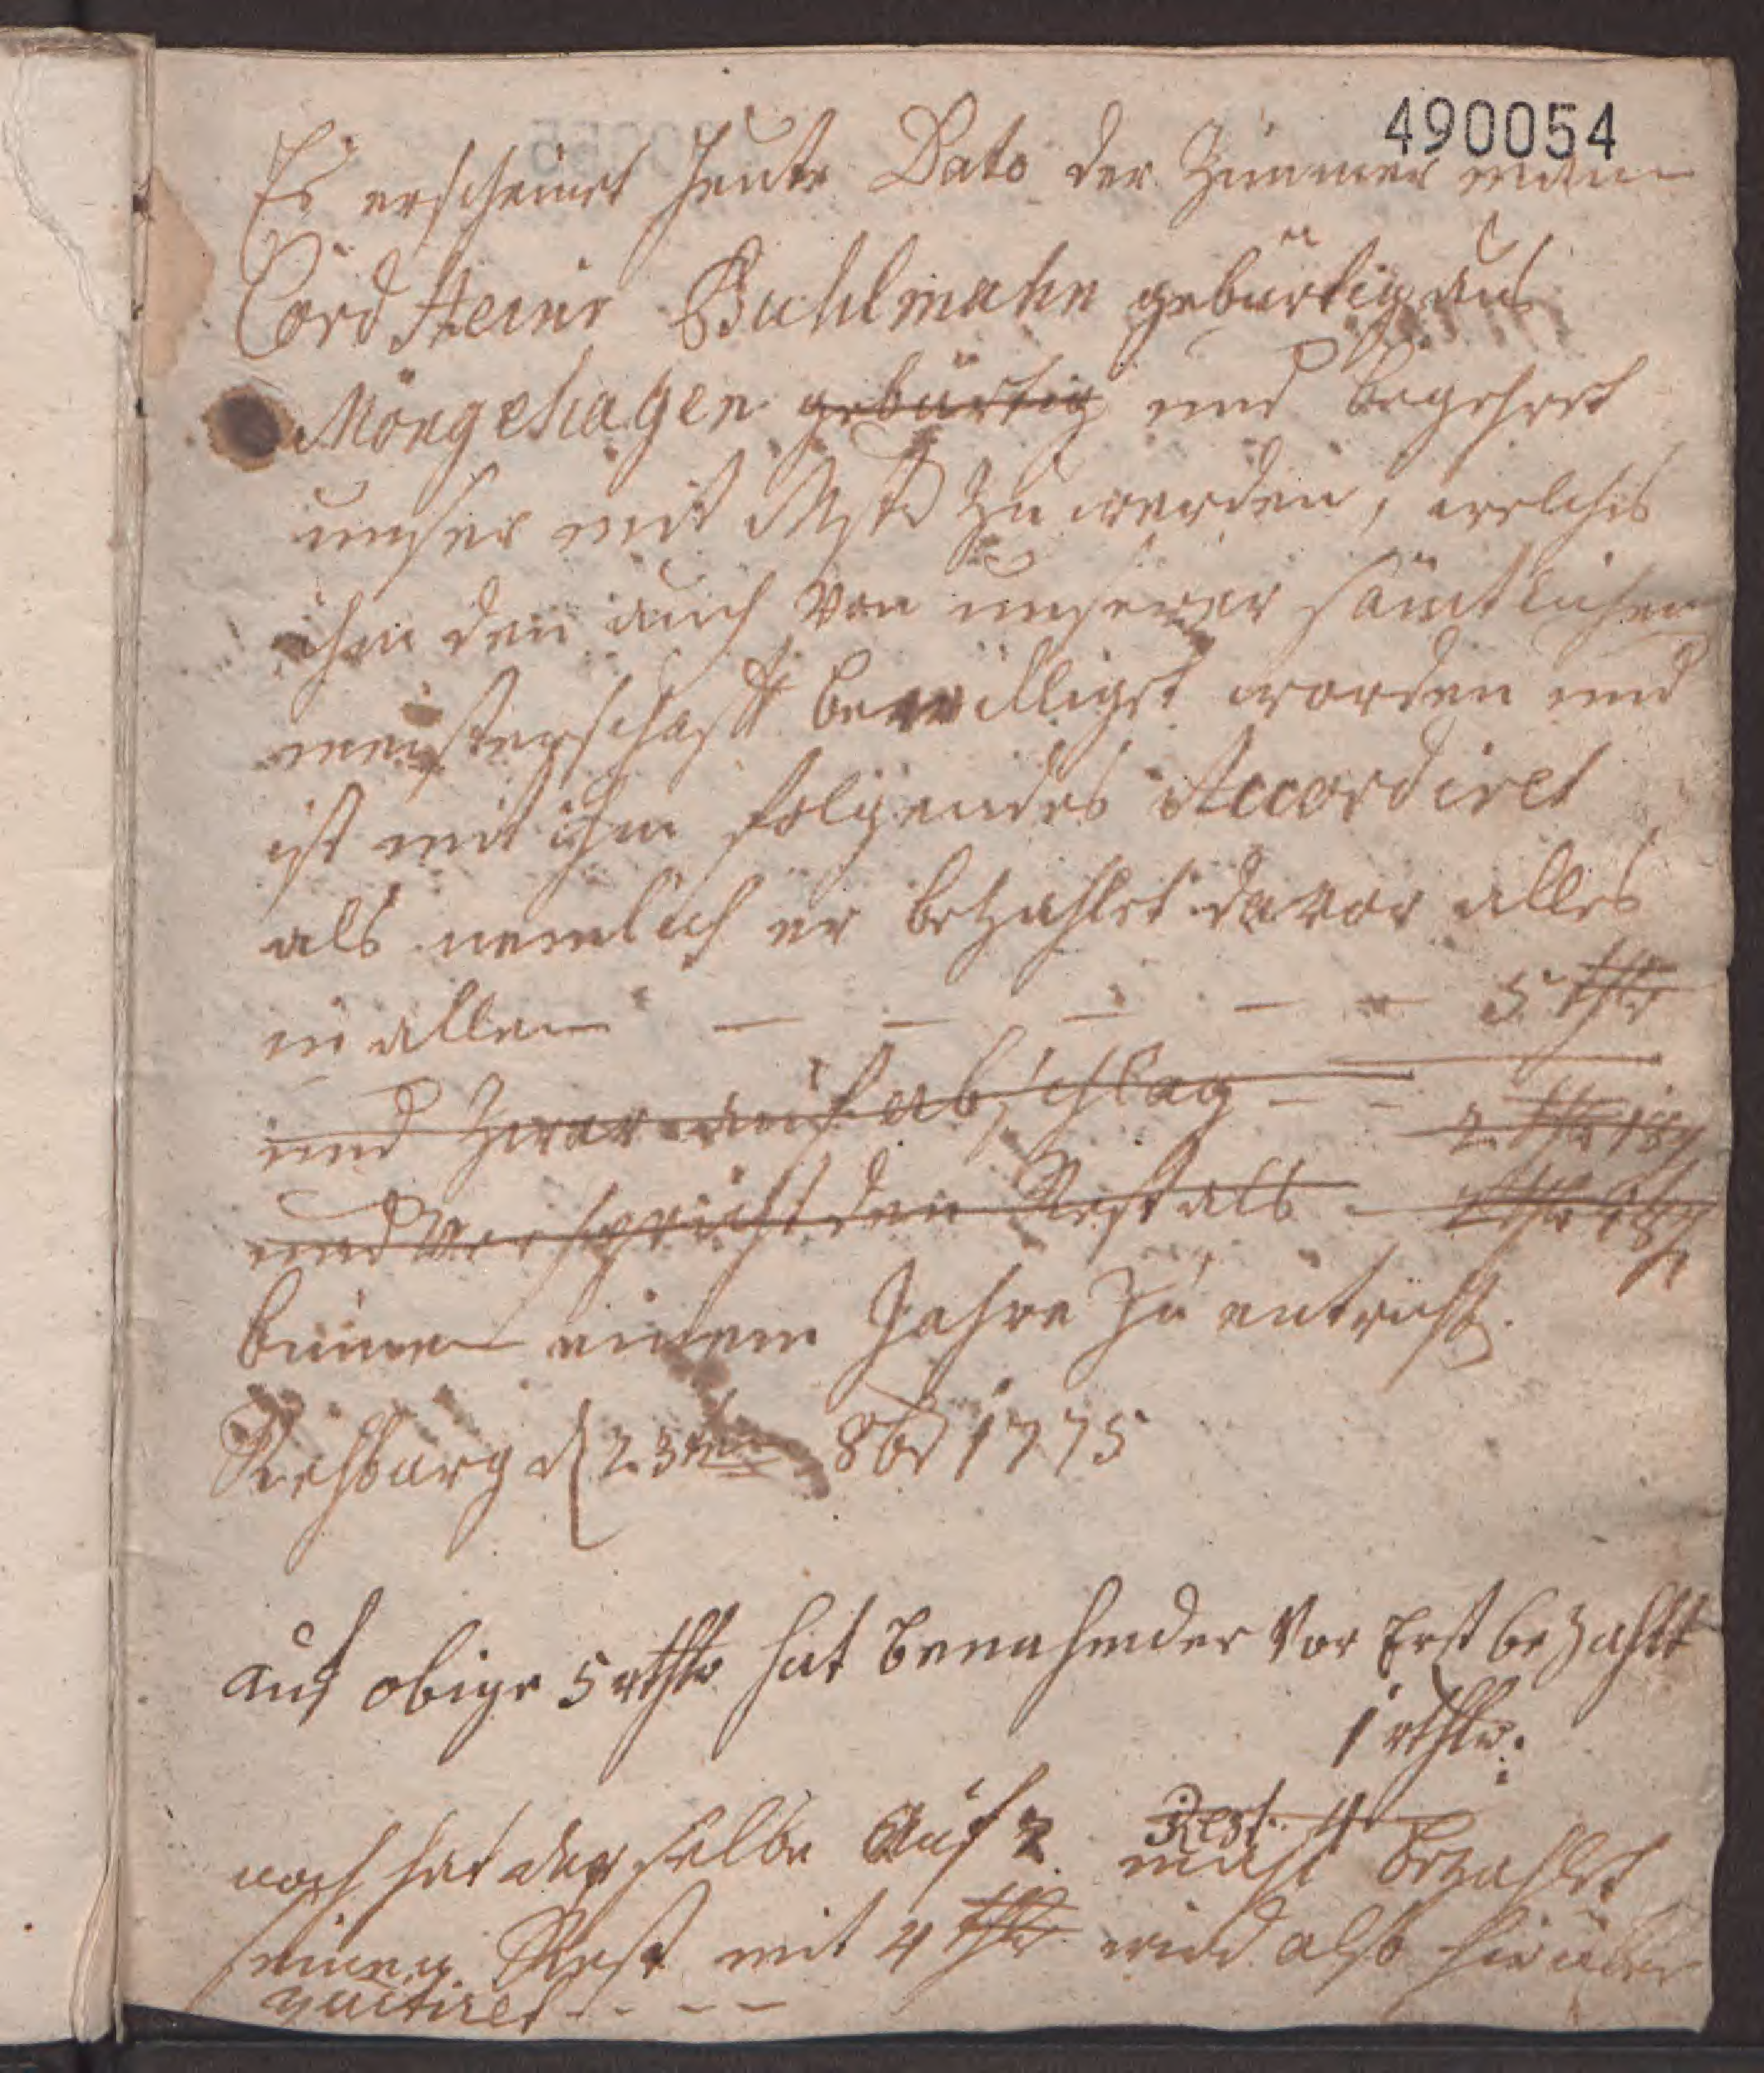 490054
Es erscheinet heute Dato der Zimmer mann
Cord Heinr Buhlmahn gebürtig aus
Mörgehagen gebürtig und begehret
unser mit Mstr zu werden, welches
ihm den auch von unserer sämtlichen
meisterschafft bewilliget worden und
ist mit ihm folgendes Accordiret
als nemlich er bezahlet davor alles
in allem — — — — 5 thlr
und zwar auf abschlag — — 2 thlr 18
und verspricht den Rest als —
binnen einem Jahre zu entricht.
Rehburg d 23ten 8br 1775
auf obige 5 rthlr hat benahmder vor Erst bezahlt
1 rthlr.
Rest. 4
noch hat der selbe Auf 2 mahl bezahlet
seinen Rest mit 4 thlr wird also hirüber
quitiret - - - -